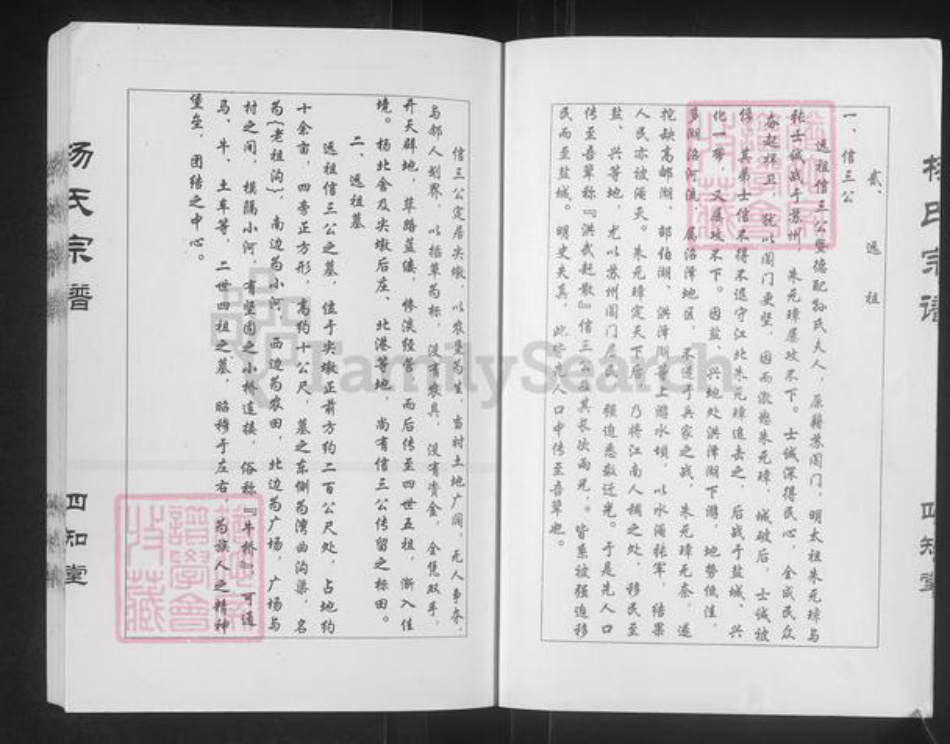 杨氏宗谱
四知堂
贰、远祖
一、信三公
远祖信三公暨德配孙氏夫人，原籍苏阊门，明太祖朱元璋与
张士诚战于苏州，朱元璋屡攻不下。士诚深得民心，全城民众
奋起捍卫，犹以阊门更坚，因而激怒朱元璋，城破后，士诚被
俘，其弟士信不得不退守江北朱元璋追击之，后战于盐城、兴
化一带，又屡攻不下。因盐、兴地处洪泽湖下游，地势低洼，
多湖泊河流，属沼泽地区，不适于兵家之战，朱元璋无奈，遂
挖缺高邮湖、邵伯湖、洪泽湖等上游水坝，以水淹张军，结果
人民亦被淹灭。朱元璋定天下后，乃将江南人稠之处，移民至
盐、兴等地，尤以苏州阊门居民，强迫悉数迁光。于是先人口
传至吾辈称『洪武赶散』信三公及其长次两兄，皆系被强迫移
民而至盐城。明史失真，此皆先人口中传至吾辈也。
信三公定居尖墩，以农垦为生，当时土地广阔，无人争夺，
与邻人划界，以插草为标，没有农具，没有资金，全凭双手，
开天辟地，草路蓝缕，惨淡经营，而后传至四世五祖，渐入佳
境。杨北舍及尖墩后庄、北港等地，尚有信三公传留之标田。
二、远祖墓
远祖信三公之墓，位于尖墩正前方约二百公尺处，占地约
十余亩，四旁正方形，高约十公尺，墓之东侧为湾曲沟渠，名
为(老祖沟)，南边为小河，西边为农田，北边为广场，广场与
村之间，横隔小河，有坚固之小桥连接，俗称『牛桥』，可通
马、牛、土车等，二世四祖之墓，昭穆于左右，为族人之精神
堡垒，团结之中心。
杨氏宗谱
四知堂
FamilySearch